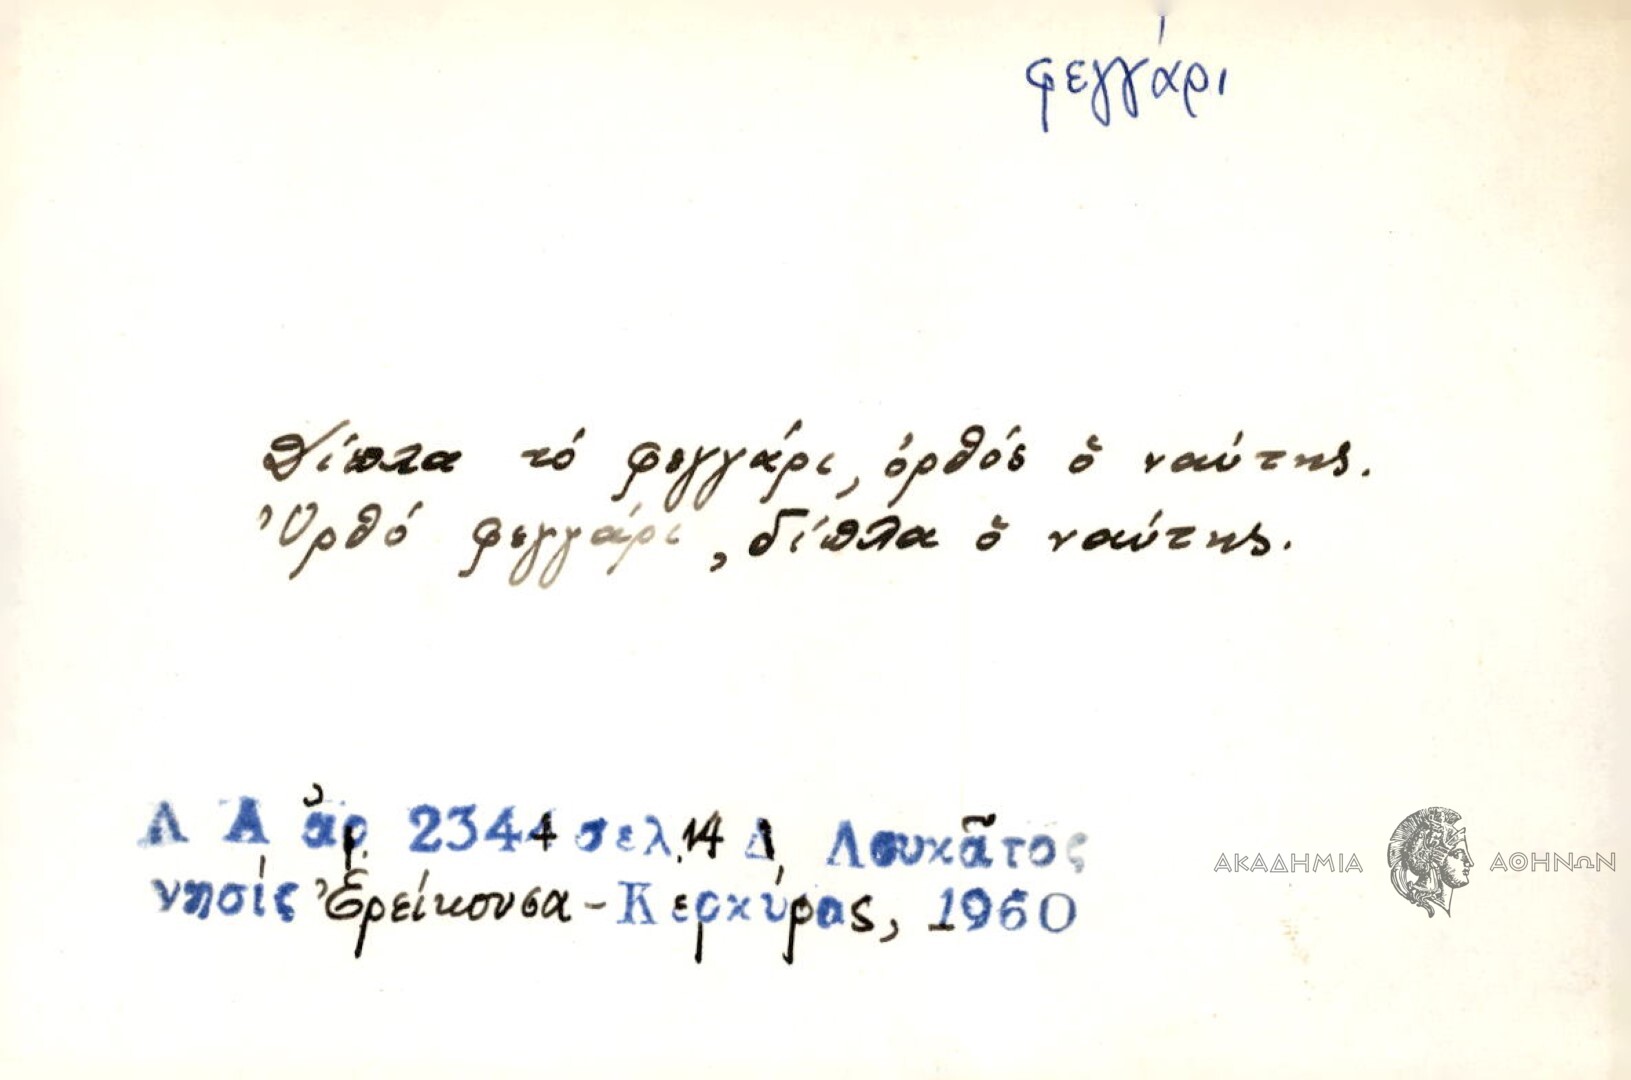 φεγγάρι
Δίπλα τό φεγγάρι, ὀρθός ὁ ναύτης.
Ὀρθό φεγγάρι, δίπλα ὁ ναύτης.
Λ Α ἀρ. 2344 σελ. 14 Δ. Λουκᾶτος
νησίς Ἐρείκουσα - Κερκύρας, 1960
ΑΚΑΔΗΜΙΑ ΑΘΗΝΩΝ